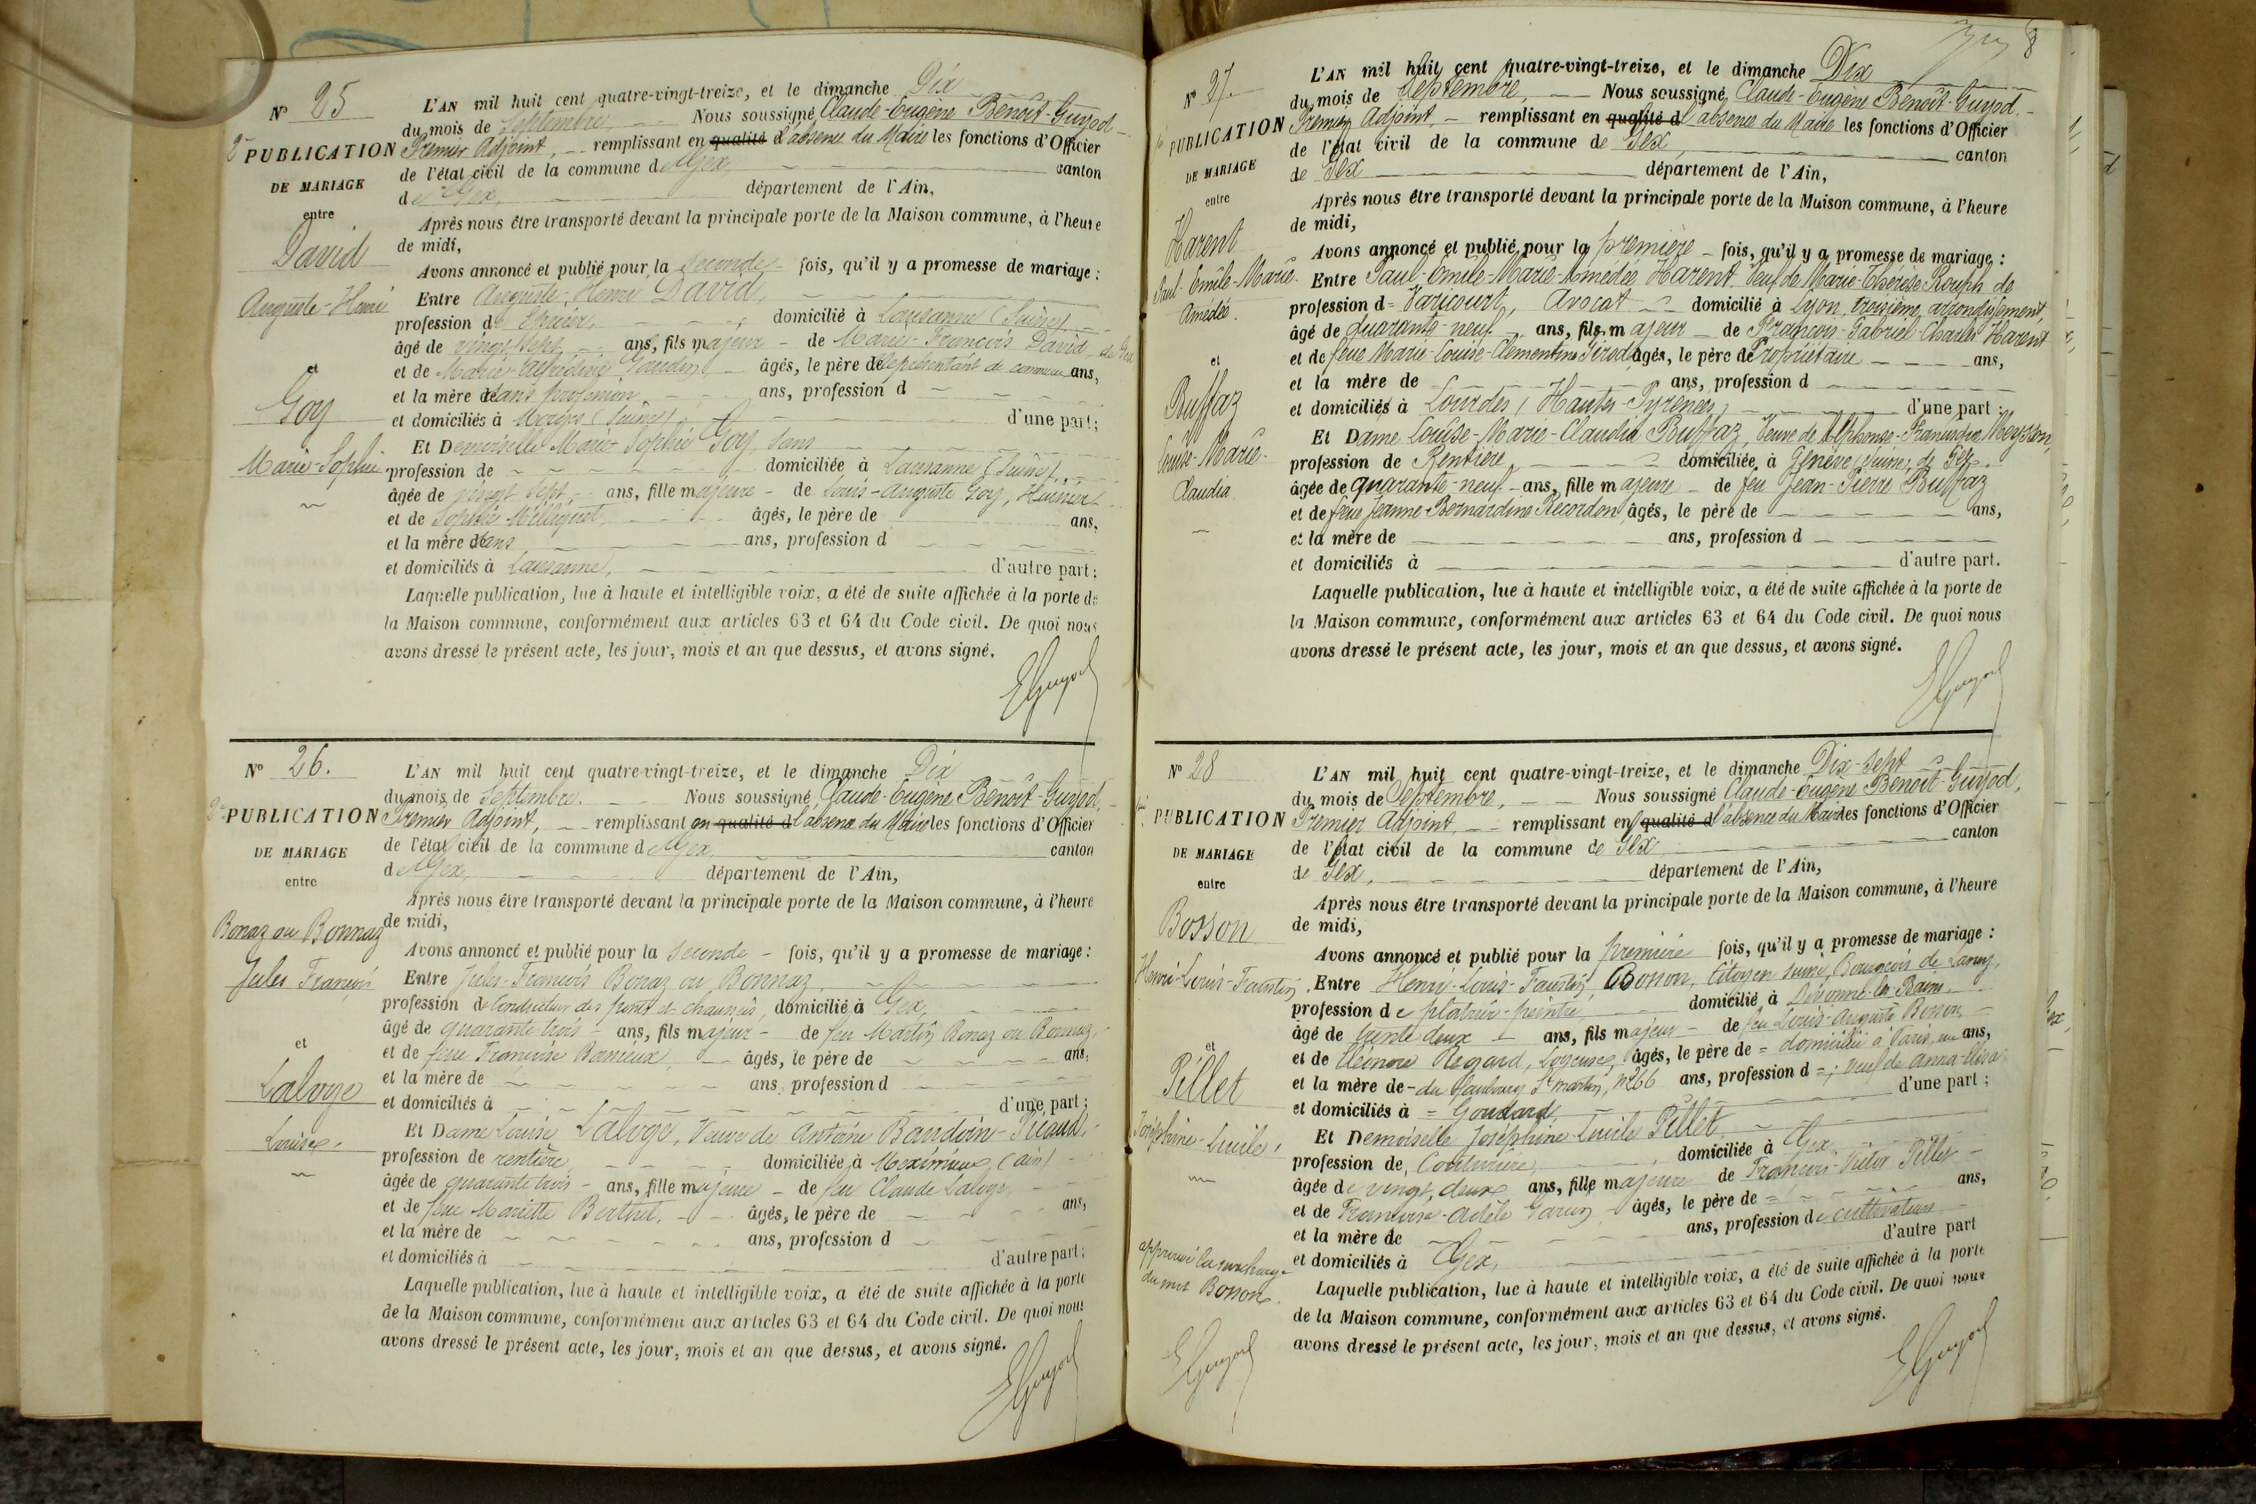 N° 25
2e PUBLICATION
DE MARIAGE
entre
David
Auguste-Henri
et
Goy
Marie-Sophie
L'AN mil huit cent quatre-vingt-treize, et le dimanche Dix
du mois de Septembre, Nous soussigné Claude-Eugène Benoît-Guyod
Premier Adjoint, remplissant en qualité d l'absence du Maire les fonctions d'Officier
de l'état civil de la commune de Gex, canton
de Gex, département de l'Ain,
Après nous être transporté devant la principale porte de la Maison commune, à l'heure
de midi,
Avons annoncé et publié pour la seconde fois, qu'il y a promesse de mariage :
Entre Auguste-Henri David,
profession d domicilié à Lausanne (Suisse)
âgé de vingt sept ans, fils majeur de François David
et de Marie Gaudin âgés, le père de représentant de commerce ans,
et la mère de sans profession ans, profession d
et domiciliés à (Suisse), d'une part;
Et Demoiselle Marie Sophie Goy, sans
profession de domiciliée à Lausanne (Suisse),
âgée de vingt sept, ans, fille majeure de Louis-Auguste Goy, Huissier
et de Sophie âgés, le père de ans,
et la mère de ans ans, profession d
et domiciliés à Lausanne, d'autre part;
Laquelle publication, lue à haute et intelligible voix, a été de suite affichée à la porte de
la Maison commune, conformément aux articles 63 et 64 du Code civil. De quoi nous
avons dressé le présent acte, les jour, mois et an que dessus, et avons signé.
EGuyod
N° 26.
2e PUBLICATION
DE MARIAGE
entre
Bonaz ou Bonnaz
Jules François
et
Laloge
Louise
L'AN mil huit cent quatre-vingt-treize, et le dimanche Dix
du mois de Septembre. Nous soussigné Claude-Eugène Benoît-Guyod,
Premier Adjoint, remplissant en qualité d l'absence du Maire les fonctions d'Officier
de l'état civil de la commune de Gex, canton
de Gex, département de l'Ain,
Après nous être transporté devant la principale porte de la Maison commune, à l'heure
de midi,
Avons annoncé et publié pour la seconde fois, qu'il y a promesse de mariage :
Entre Jules-François Bonaz ou Bonnaz,
profession de Conducteur des ponts et chaussées, domicilié à Gex,
âgé de quarante trois ans, fils majeur de feu Martin Bonaz ou Bonnaz,
et de feue Françoise âgés, le père de ans,
et la mère de ans, profession d
et domiciliés à d'une part;
Et Dame Louise Laloge, Veuve de Antoine Baudoin-Picaud,
profession de rentière domiciliée à Meximieux (ain)
âgée de quarante trois ans, fille majeure de feu Claude Laloge,
et de feue Mariette Berthet, âgés, le père de ans,
et la mère de ans, profession d
et domiciliés à d'autre part;
Laquelle publication, lue à haute et intelligible voix, a été de suite affichée à la porte
de la Maison commune, conformément aux articles 63 et 64 du Code civil. De quoi nous
avons dressé le présent acte, les jour, mois et an que dessus, et avons signé.
EGuyod
8
N° 27
PUBLICATION
DE MARIAGE
entre
Harent
Paul-Emile-Marie-
Amédée.
et
Buffaz
Louise-Marie-
Claudia
L'AN mil huit cent quatre-vingt-treize, et le dimanche Dix
du mois de Septembre, Nous soussigné Claude-Eugène Benoît-Guyod.
Premier Adjoint, remplissant en qualité d l'absence du Maire les fonctions d'Officier
de l'état civil de la commune de Gex, canton
de Gex département de l'Ain,
Après nous être transporté devant la principale porte de la Maison commune, à l'heure
de midi,
Avons annoncé et publié pour la première fois, qu'il y a promesse de mariage :
Entre Paul-Emile-Marie-Amédée Harent Veuf de Marie-Thérèse Rouph de
profession d= Varicourt, Avocat domicilié à Lyon, troisième arrondissement,
âgé de quarante-neuf ans, fils majeur de François-Gabriel-Charles Harent
et de feue Marie-Louise-Clémentine Girod âgés, le père de Propriétaire ans,
et la mère de ans, profession d
et domiciliés à Lourdes (Hautes-Pyrénées) d'une part;
Et Dame Louise-Marie-Claudia Buffaz, Veuve de Alphonse-Francisque Meysson,
profession de Rentière, domiciliée à Genève (Suisse), de Gex.
âgée de quarante-neuf ans, fille majeure de feu Jean-Pierre Buffaz
et de feue Jeanne-Bernardine Recordon âgés, le père de ans,
et la mère de ans, profession d
et domiciliés à d'autre part.
Laquelle publication, lue à haute et intelligible voix, a été de suite affichée à la porte de
la Maison commune, conformément aux articles 63 et 64 du Code civil. De quoi nous
avons dressé le présent acte, les jour, mois et an que dessus, et avons signé.
EGuyod
N° 28
PUBLICATION
DE MARIAGE
entre
Bosson
Henri-Louis-Faustin
et
Pillet
Joséphine-Lucile
approuvé la surcharge
du mot Bosson.
EGuyod
L'AN mil huit cent quatre-vingt-treize, et le dimanche Dix-Sept
du mois de Septembre, Nous soussigné Claude-Eugène Benoît-Guyod,
Premier Adjoint, remplissant en qualité d l'absence du Maire les fonctions d'Officier
de l'état civil de la commune de Gex canton
de Gex, département de l'Ain,
Après nous être transporté devant la principale porte de la Maison commune, à l'heure
de midi,
Avons annoncé et publié pour la première fois, qu'il y a promesse de mariage :
Entre Henri-Louis-Faustin Bosson, Citoyen suisse, Bourgeois de Lancy,
profession de plâtrier-peintre, domicilié à Divonne-les-Bains.
âgé de trente deux ans, fils majeur de feu Louis-Auguste Bosson,
et de Eléonore Regard, âgés, le père de = domiciliée à Paris, rue ans,
et la mère de - du Faubourg St Martin, N° 266 ans, profession d = ; veuf de Anna-Elisa
et domiciliés à = Goudard, d'une part;
Et Demoiselle Joséphine-Lucile Pillet
profession de Couturière, domiciliée à Gex,
âgée de vingt, deux ans, fille majeure de François-Victor Pillet
et de Françoise-Adèle Garin âgés, le père de = ans,
et la mère de ans, profession de cultivateurs
et domiciliés à Gex, d'autre part
Laquelle publication, lue à haute et intelligible voix, a été de suite affichée à la porte
de la Maison commune, conformément aux articles 63 et 64 du Code civil. De quoi nous
avons dressé le présent acte, les jour, mois et an que dessus, et avons signé.
EGuyod